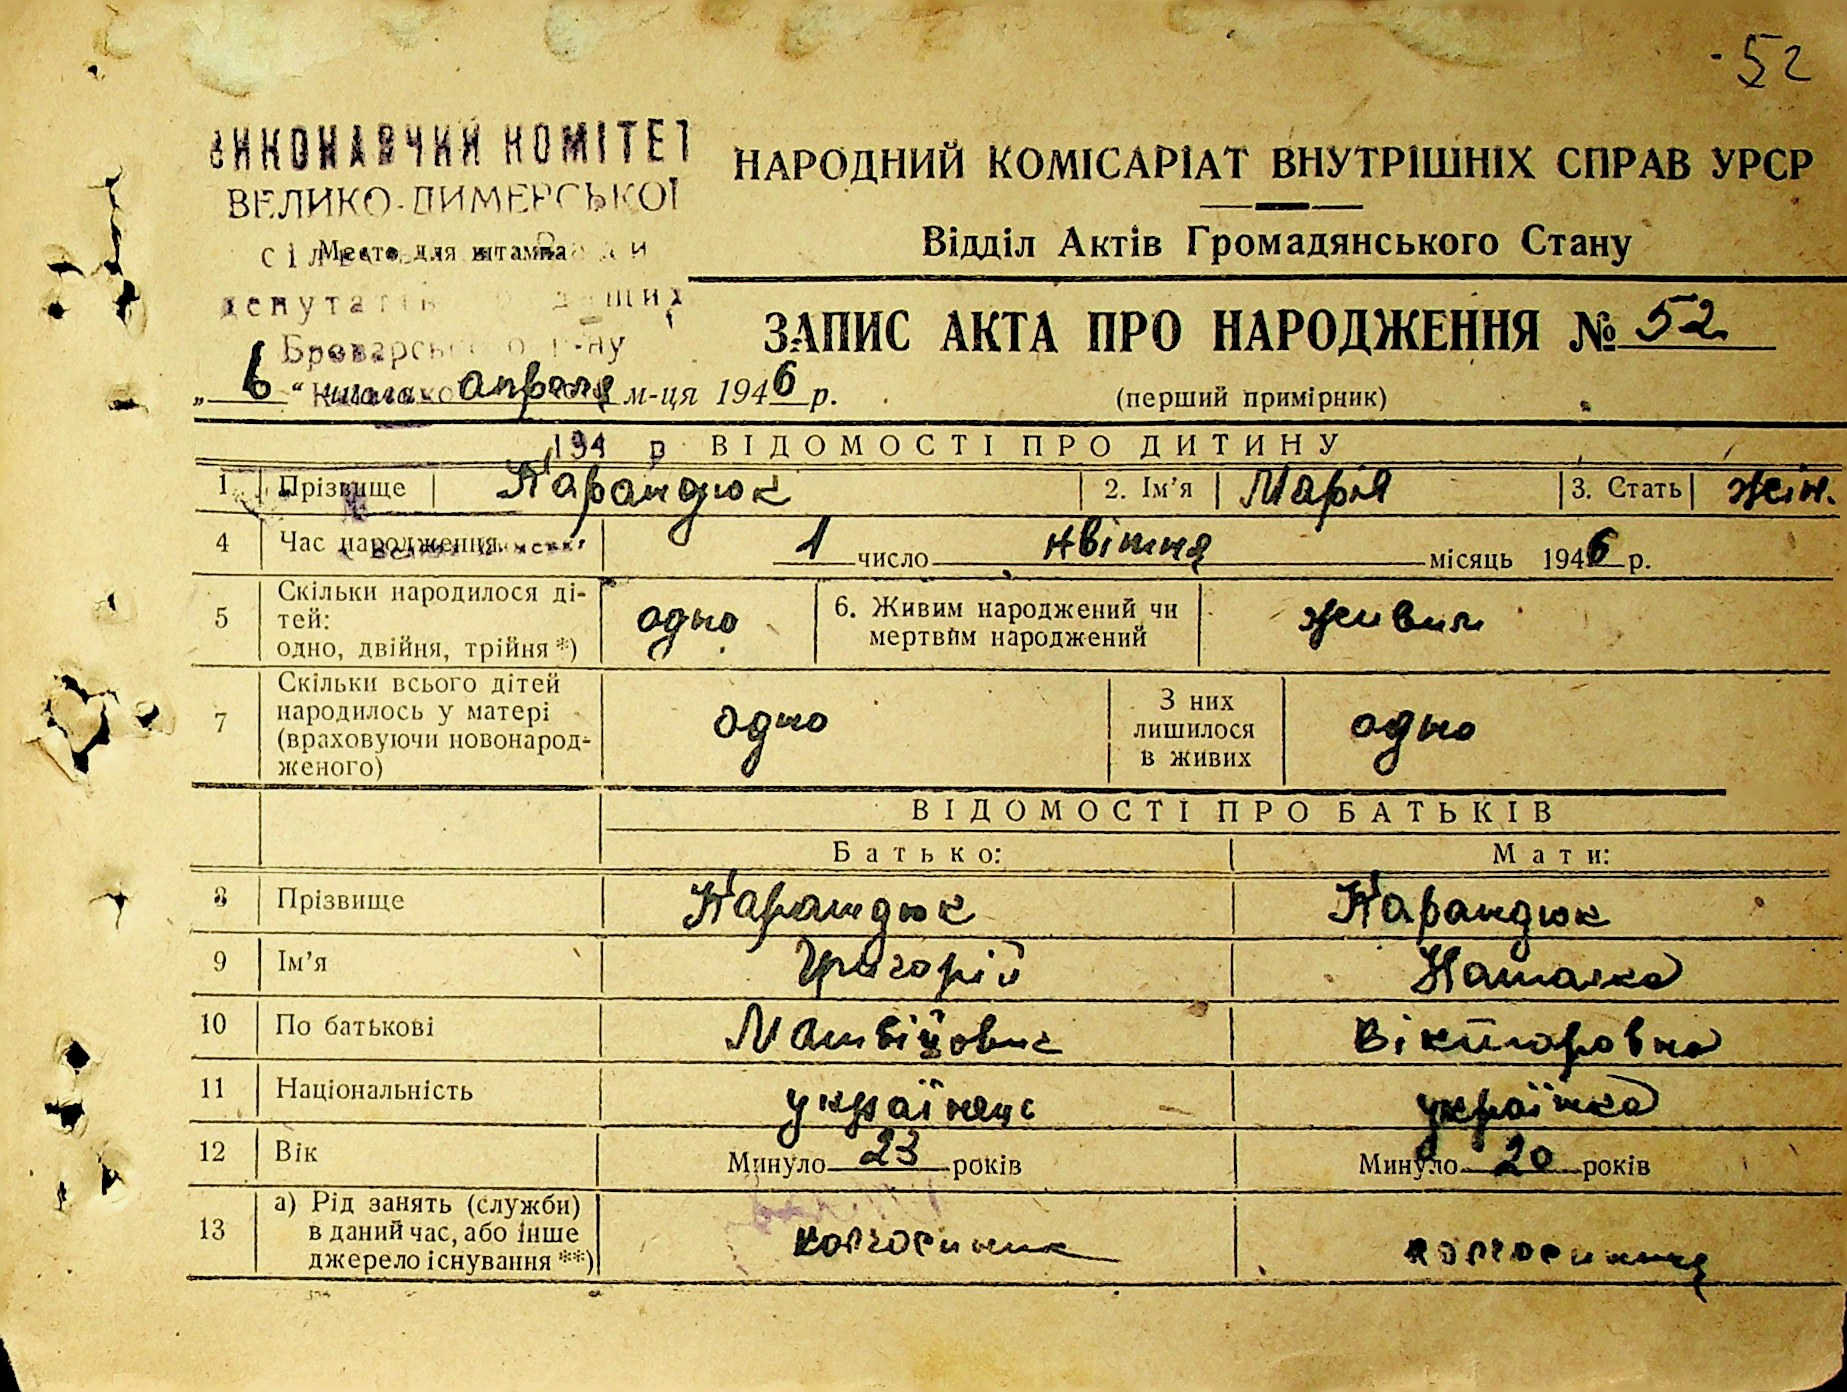 52
ВИКОНАВЧИЙ КОМІТЕТ
ВЕЛИКО-ДИМЕРСЬКОЇ
Место для штампа
депутатів
НАРОДНИЙ КОМІСАРІАТ ВНУТРІШНІХ СПРАВ УРСР
Відділ Актів Громадянського Стану
ЗАПИС АКТА ПРО НАРОДЖЕННЯ № 52
„ 6 “ числа апреля м-ця 1946 р.
(перший примірник)
194 р
ВІДОМОСТІ ПРО ДИТИНУ
1 Прізвище Карандюк 2. Ім'я Марія 3. Стать жін.
4 Час народження 1 число квітня місяць 1946 р.
5 Скільки народилося ді-
тей:
одно, двійня, трійня *) одно 6. Живим народжений чи
мертвим народжений живим
7 Скільки всього дітей
народилось у матері
(враховуючи новонарод-
женого) одно З них
лишилося
в живих одно
ВІДОМОСТІ ПРО БАТЬКІВ
Батько: Мати:
8 Прізвище Карандюк Карандюк
9 Ім'я Григорій Наталка
10 По батькові Матвійович Вікторовна
11 Національність українец українка
12 Вік Минуло 23 років Минуло 20 років
13 а) Рід занять (служби)
в даний час, або інше
джерело існування **) колгоспник колгоспниця